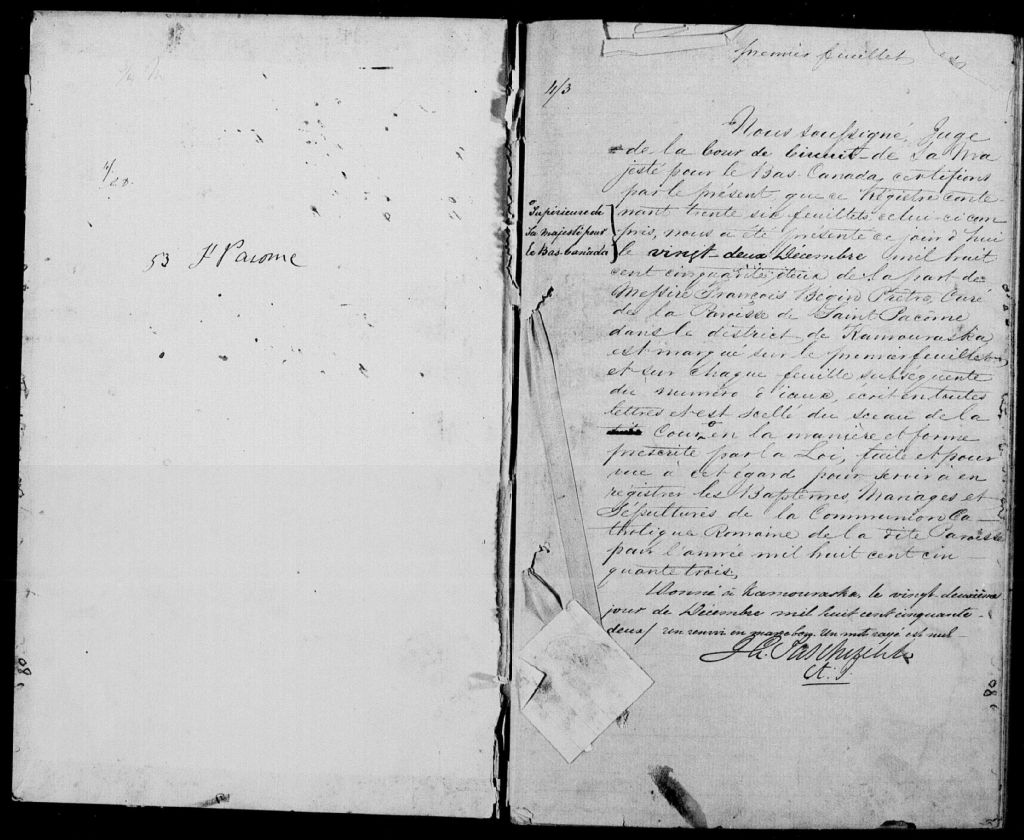 4/28.
53 St Pacome
premier feuillet
4/3
Nous soussigné, Juge
de la Cour de Circuit de Sa Ma
jesté pour le Bas-Canada, certifions
par le présent que ce Régistre conte
nant trente six feuillets celui-ci com
pris, nous a été présenté ce jour d'hui
le vingt-deux Décembre mil huit
cent cinquante, deux de la part de
Messire François Bégin Prêtre, Curé
de la Paroisse de Saint Pacôme
dans le district de Kamouraska,
est marqué sur le premier feuillet
et sur chaque feuille subséquente
du numéro d'iceux, écrit en toutes
lettres et est scellé du sceau de la
Cour, en la manière et forme
prescrite par la Loi, faite et pour
vue à cet égard pour servir à en
régistrer les Baptêmes, Mariages et
Sépultures de la Communion Ca
tholique Romaine de la dite Paroisse
pour l'année mil huit cent cin
quante trois,
Supérieure de
Sa Majesté pour
le Bas-Canada
Donné à Kamouraska, le vingt-deuxième
jour de Décembre mil huit cent cinquante-
deux / un renvoi en marge bon. Un mot rayé est nul